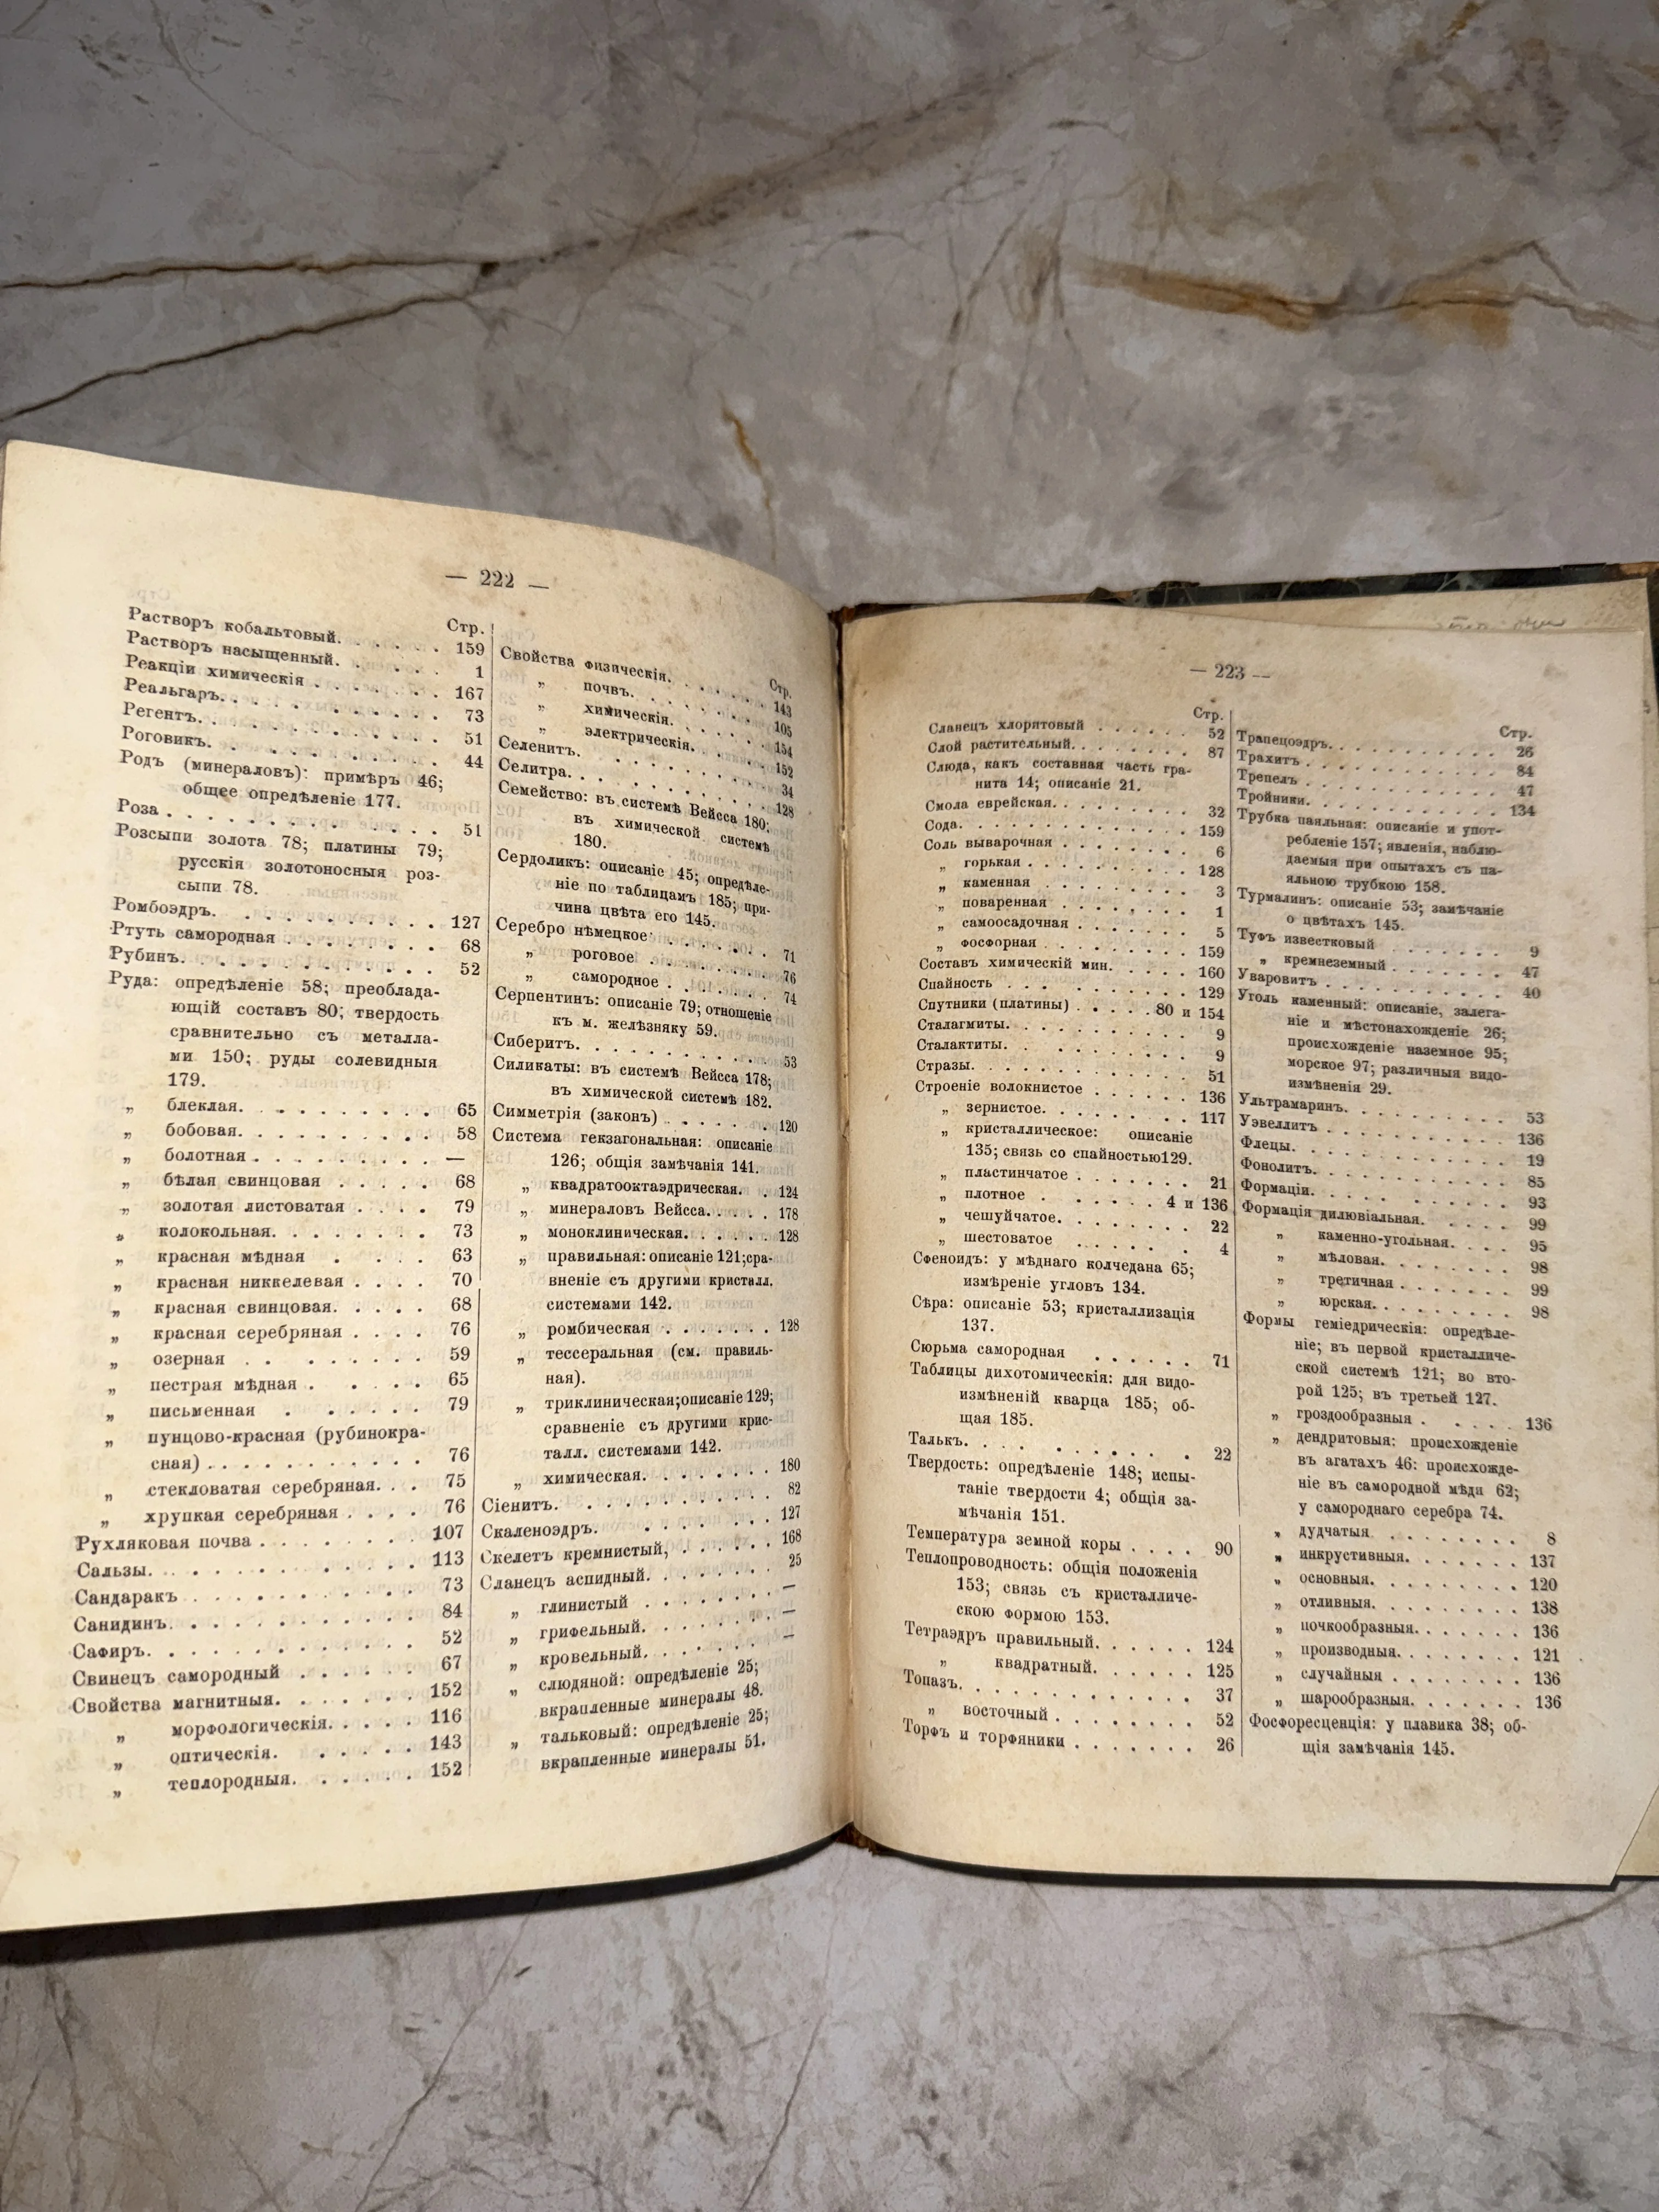 — 222 —
Стр.
Растворъ кобальтовый. . . . . . 159
Растворъ насыщенный. . . . . 1
Реакціи химическія . . . . . . . 167
Реальгаръ. . . . . . . . . . 73
Регентъ. . . . . . . . . . . 51
Роговикъ. . . . . . . . . . 44
Родъ (минераловъ): примѣръ 46;
общее опредѣленіе 177.
Роза . . . . . . . . . . . 51
Розсыпи золота 78; платины 79;
русскія золотоносныя роз-
сыпи 78.
Ромбоэдръ. . . . . . . . . . 127
Ртуть самородная . . . . . . . 68
Рубинъ. . . . . . . . . . . 52
Руда: опредѣленіе 58; преоблада-
ющій составъ 80; твердость
сравнительно съ металла-
ми 150; руды солевидныя
179.
„ блеклая. . . . . . . . . 65
„ бобовая. . . . . . . . . 58
„ болотная . . . . . . . . —
„ бѣлая свинцовая . . . . . 68
„ золотая листоватая . . . . 79
„ колокольная. . . . . . . 73
„ красная мѣдная . . . . 63
„ красная никкелевая . . . . 70
„ красная свинцовая. . . . . 68
„ красная серебряная . . . . 76
„ озерная . . . . . . . . 59
„ пестрая мѣдная . . . . . 65
„ письменная . . . . . . 79
„ пунцово-красная (рубинокра-
сная) . . . . . . . . . . 76
„ стекловатая серебряная. . . 75
„ хрупкая серебряная . . . . 76
Рухляковая почва . . . . . . . . 107
Сальзы. . . . . . . . . . . 113
Сандаракъ . . . . . . . . . . 73
Санидинъ. . . . . . . . . . 84
Сафиръ. . . . . . . . . . . 52
Свинецъ самородный . . . . . . 67
Свойства магнитныя. . . . . . . 152
„ морфологическія. . . . . 116
„ оптическія. . . . . . 143
„ теплородныя. . . . . . 152
Стр.
Свойства физическія. . . . . . 143
„ почвъ. . . . . . . . 105
„ химическія. . . . . . 154
„ электрическія. . . . . 152
Селенитъ. . . . . . . . . . 34
Селитра. . . . . . . . . . . 128
Семейство: въ системѣ Вейсса 180;
въ химической системѣ
180.
Сердоликъ: описаніе 45; опредѣле-
ніе по таблицамъ 185; при-
чина цвѣта его 145.
Серебро нѣмецкое . . . . . . . 71
„ роговое . . . . . . . 76
„ самородное . . . . . . 74
Серпентинъ: описаніе 79; отношеніе
къ м. желѣзняку 59.
Сиберитъ. . . . . . . . . . 53
Силикаты: въ системѣ Вейсса 178;
въ химической системѣ 182.
Симметрія (законъ) . . . . . . 120
Система гекзагональная: описаніе
126; общія замѣчанія 141.
„ квадратооктаэдрическая. . 124
„ минераловъ Вейсса. . . . . 178
„ моноклиническая. . . . . . 128
„ правильная: описаніе 121; сра-
вненіе съ другими кристалл.
системами 142.
„ ромбическая . . . . . . . 128
„ тессеральная (см. правиль-
ная).
„ триклиническая; описаніе 129;
сравненіе съ другими крис-
талл. системами 142.
„ химическая. . . . . . . . 180
Сіенитъ. . . . . . . . . . 82
Скаленоэдръ. . . . . . . . . 127
Скелетъ кремнистый, . . . . . . 168
Сланецъ аспидный. . . . . . . 25
„ глинистый . . . . . . . —
„ грифельный. . . . . . . —
„ кровельный. . . . . . . —
„ слюдяной: опредѣленіе 25;
вкрапленные минералы 48.
„ тальковый: опредѣленіе 25;
вкрапленные минералы 51.
— 223 —
Стр.
Сланецъ хлоритовый . . . . . . 52
Слой растительный. . . . . . . 87
Слюда, какъ составная часть гра-
нита 14; описаніе 21.
Смола еврейская. . . . . . . . 32
Сода. . . . . . . . . . . . 159
Соль выварочная . . . . . . . . 6
„ горькая . . . . . . . . . 128
„ каменная . . . . . . . . 3
„ поваренная . . . . . . . 1
„ самоосадочная . . . . . . 5
„ фосфорная . . . . . . . . 159
Составъ химическій мин. . . . . 160
Спайность . . . . . . . . . 129
Спутники (платины) . . . . . 80 и 154
Сталагмиты. . . . . . . . . . 9
Сталактиты. . . . . . . . . . 9
Стразы. . . . . . . . . . . 51
Строеніе волокнистое . . . . . . 136
„ зернистое. . . . . . . 117
„ кристаллическое: описаніе
135; связь со спайностью 129.
„ пластинчатое . . . . . . . 21
„ плотное . . . . . . 4 и 136
„ чешуйчатое. . . . . . . 22
„ шестоватое . . . . . . 4
Сфеноидъ: у мѣднаго колчедана 65;
измѣреніе угловъ 134.
Сѣра: описаніе 53; кристаллизація
137.
Сюрьма самородная . . . . . . 71
Таблицы дихотомическія: для видо-
измѣненій кварца 185; об-
щая 185.
Талькъ. . . . . . . . . . . 22
Твердость: опредѣленіе 148; испы-
таніе твердости 4; общія за-
мѣчанія 151.
Температура земной коры . . . . 90
Теплопроводность: общія положенія
153; связь съ кристалличе-
скою формою 153.
Тетраэдръ правильный. . . . . . 124
„ квадратный. . . . . . 125
Топазъ. . . . . . . . . . . 37
„ восточный . . . . . . . 52
Торфъ и торфяники . . . . . . . 26
Стр.
Трапецоэдръ. . . . . . . . . . 26
Трахитъ . . . . . . . . . . 84
Трепелъ . . . . . . . . . . 47
Тройники. . . . . . . . . . 134
Трубка паяльная: описаніе и упот-
ребленіе 157; явленія, наблю-
даемыя при опытахъ съ па-
яльною трубкою 158.
Турмалинъ: описаніе 53; замѣчаніе
о цвѣтахъ 145.
Туфъ известковый . . . . . . . 9
„ кремнеземный . . . . . . . 47
Уваровитъ . . . . . . . . . . 40
Уголь каменный: описаніе, залега-
ніе и мѣстонахожденіе 26;
происхожденіе наземное 95;
морское 97; различныя видо-
измѣненія 29.
Ультрамаринъ. . . . . . . . . 53
Уэвеллитъ . . . . . . . . . . 136
Флецы. . . . . . . . . . . 19
Фонолитъ. . . . . . . . . . 85
Формаціи. . . . . . . . . . 93
Формація дилювіальная. . . . . 99
„ каменно-угольная. . . . 95
„ мѣловая. . . . . . . . 98
„ третичная . . . . . . . 99
„ юрская. . . . . . . . 98
Формы геміедрическія: опредѣле-
ніе; въ первой кристалличе-
ской системѣ 121; во вто-
рой 125; въ третьей 127.
„ гроздообразныя . . . . . 136
„ дендритовыя: происхожденіе
въ агатахъ 46: происхожде-
ніе въ самородной мѣди 62;
у самороднаго серебра 74.
„ дудчатыя . . . . . . . 8
„ инкрустивныя. . . . . . . 137
„ основныя. . . . . . . . 120
„ отливныя. . . . . . . . 138
„ почкообразныя. . . . . . . 136
„ производныя. . . . . . . 121
„ случайныя . . . . . . . 136
„ шарообразныя. . . . . . . 136
Фосфоресценція: у плавика 38; об-
щія замѣчанія 145.